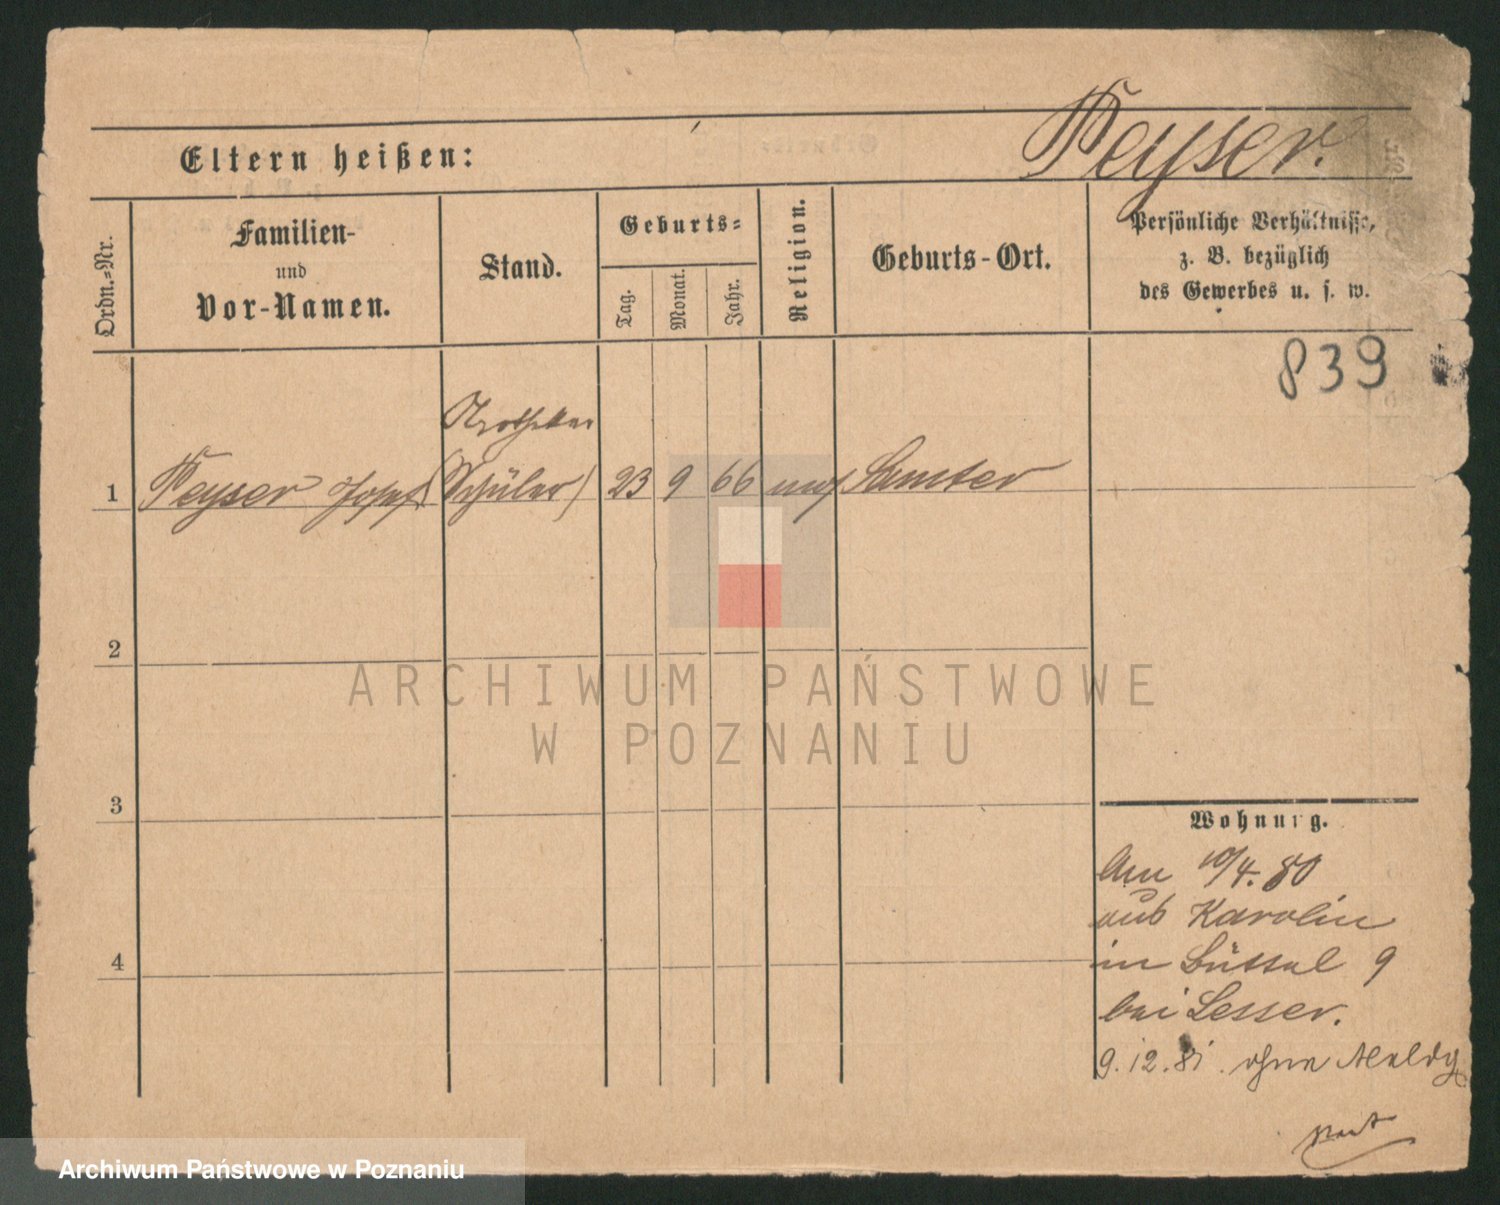 Peyser.
Eltern heißen:
Ordn.-Nr.
Familien-
und
Vor-Namen.
Stand.
Geburts-
Tag.
Monat.
Jahr.
Religion.
Geburts-Ort.
Persönliche Verhältnisse,
z. B. bezüglich
des Gewerbes u. s. w.
839
1 Peyser Josef (Schüler) 23 9 66 mos Samter
2
3
4
Wohnung.
Am 10/4. 80
aus Karolin
in Büttel 9
bei Lesser.
9. 12. 81. ohne Meldg
ARCHIWUM PAŃSTWOWE
W POZNANIU
Archiwum Państwowe w Poznaniu